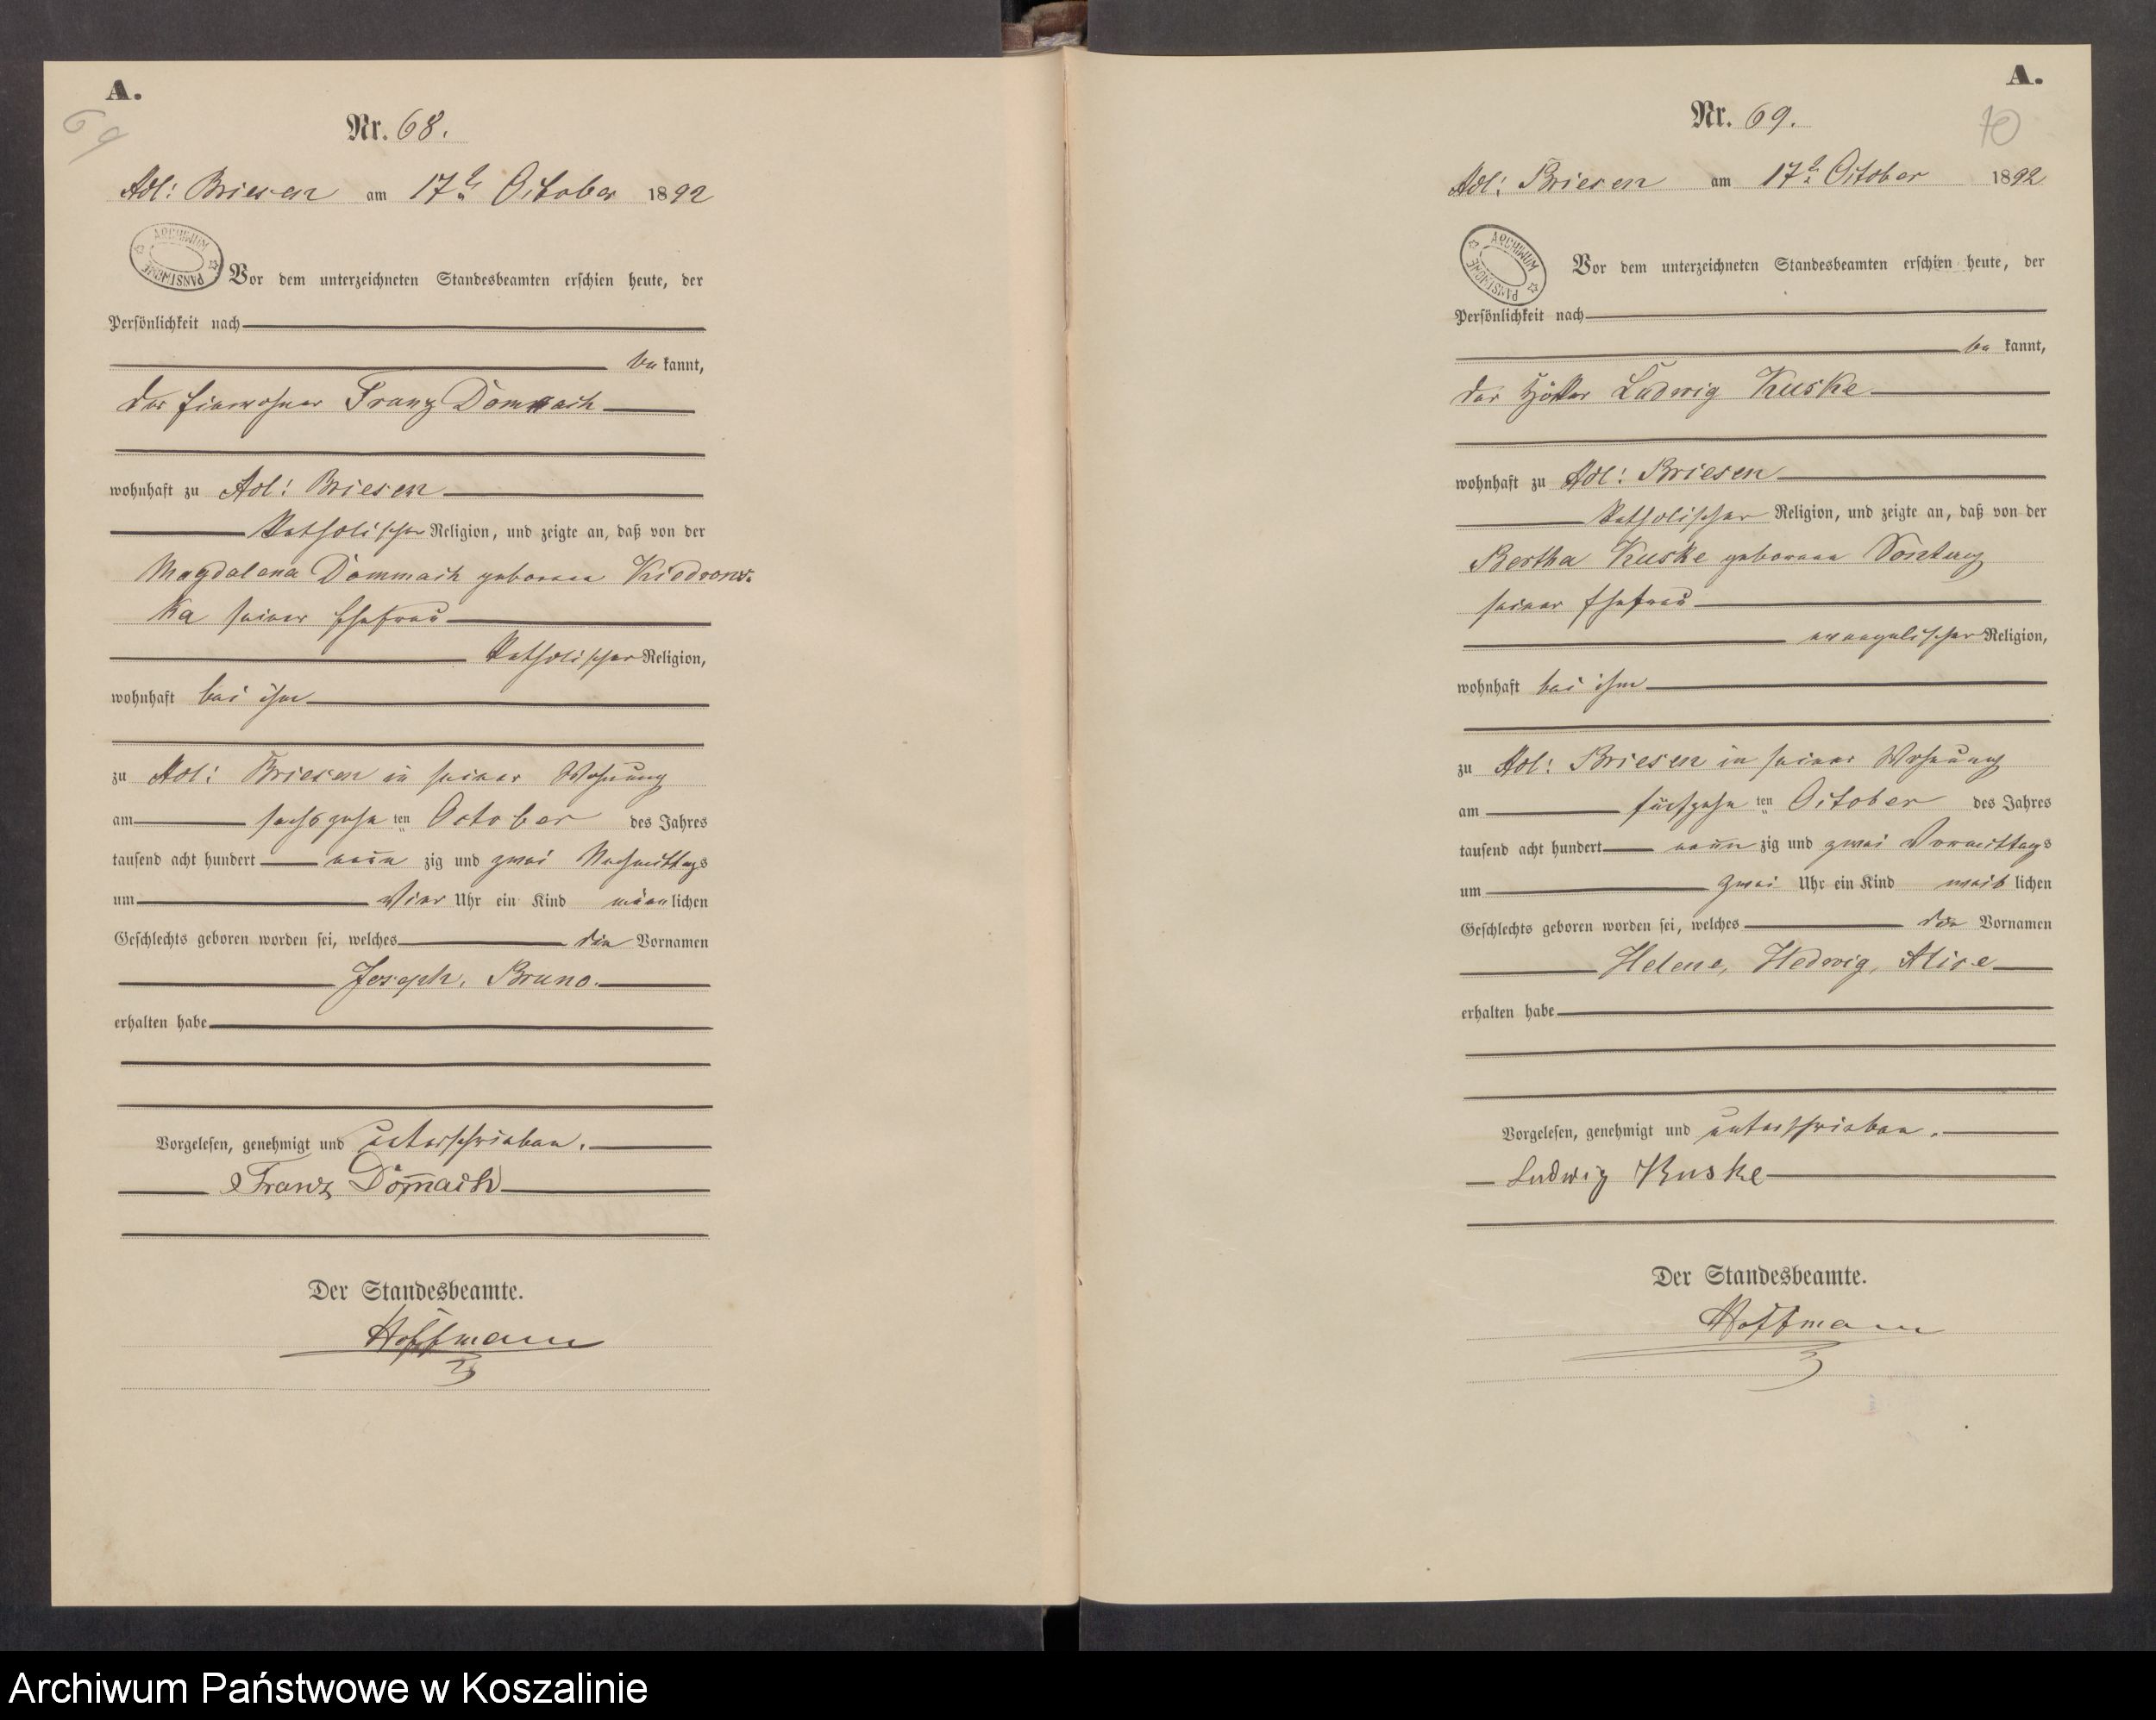 A.
69
Nr. 68.
Adl: Briesen am 17ten October 1892
ARCHIWUM PAŃSTWOWE
Vor dem unterzeichneten Standesbeamten erschien heute, der
Persönlichkeit nach
be kannt,
der Einwohner Franz Dommach
wohnhaft zu Adl: Briesen
katholischer Religion, und zeigte an, daß von der
Magdalena Dommach geborene Kiedrows-
ka seiner Ehefrau
katholischer Religion,
wohnhaft bei ihm
zu Adl: Briesen in seiner Wohnung
am sechszehn ten October des Jahres
tausend acht hundert neun zig und zwei Nachmittags
um Vier Uhr ein Kind männ lichen
Geschlechts geboren worden sei, welches die Vornamen
Joseph, Bruno.
erhalten habe
Vorgelesen, genehmigt und unterschrieben.
Franz Dom̄ach
Der Standesbeamte.
Hoffmann
A.
70
Nr. 69.
Adl: Briesen am 17ten October 1892
ARCHIWUM PAŃSTWOWE
Vor dem unterzeichneten Standesbeamten erschien heute, der
Persönlichkeit nach
be kannt,
der Ludwig Kuske
wohnhaft zu Adl: Briesen
katholischer Religion, und zeigte an, daß von der
Bertha Kuske geborene Sontag
seiner Ehefrau
evangelischer Religion,
wohnhaft bei ihm
zu Adl: Briesen in seiner Wohnung
am fünfzehn ten October des Jahres
tausend acht hundert neun zig und zwei Vormittags
um zwei Uhr ein Kind weib lichen
Geschlechts geboren worden sei, welches die Vornamen
Helene, Hedwig, Alice
erhalten habe
Vorgelesen, genehmigt und unterschrieben.
Ludwig Kuske
Der Standesbeamte.
Hoffmann
Archiwum Państwowe w Koszalinie